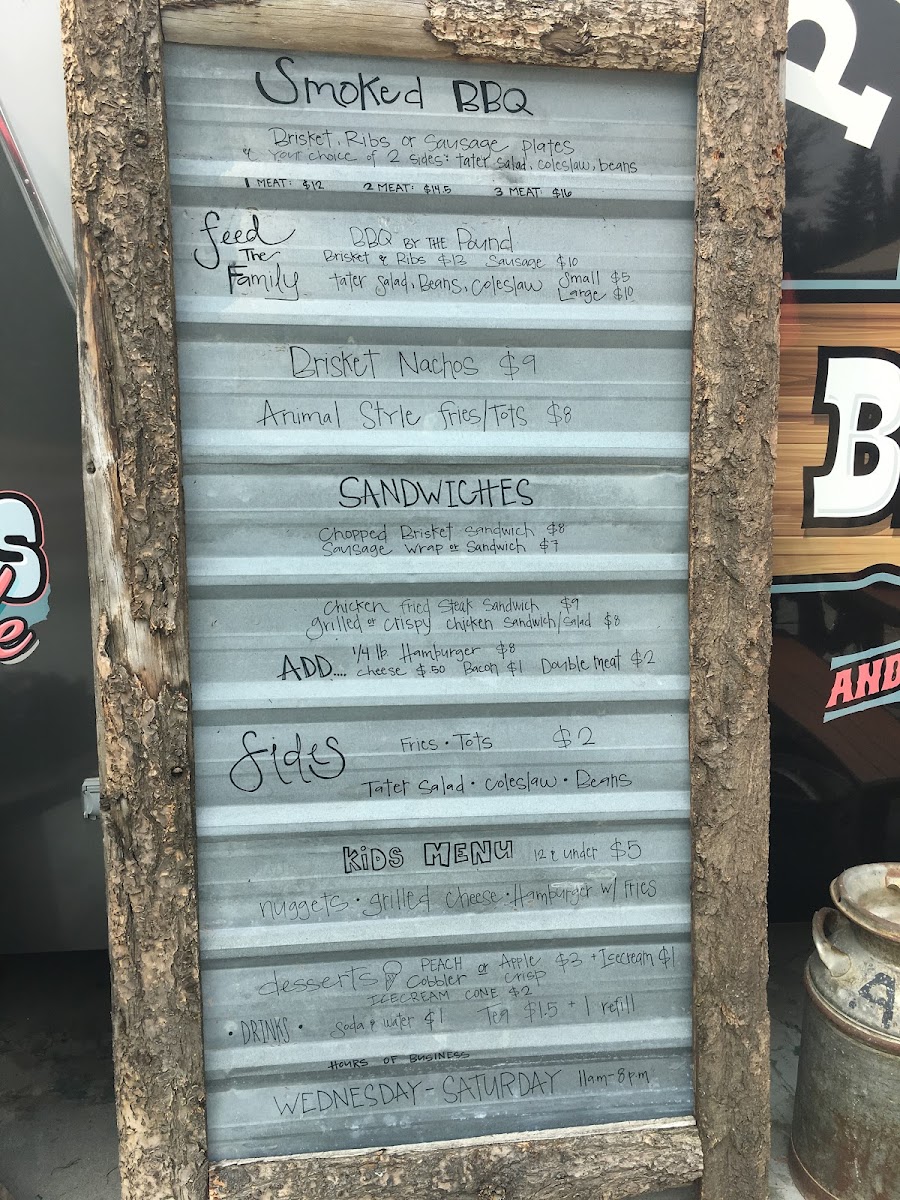 Smoked BBQ
Brisket, Ribs or Sausage plates
& Your choice of 2 sides: tater salad, coleslaw, beans
1 MEAT: $12 2 MEAT: $14.5 3 MEAT: $16
feed The Family
BBQ BY THE Pound
Brisket & Ribs $13 Sausage $10
tater salad, Beans, Coleslaw Small $5
Large $10
Brisket Nachos $9
Animal Style fries/Tots $8
SANDWICHES
Chopped Brisket Sandwich $8
Sausage Wrap or Sandwich $7
Chicken fried Steak Sandwich $9
grilled or crispy chicken sandwich/salad $8
1/4 lb Hamburger $8
ADD.... cheese $.50 Bacon $1 Double meat $2
Sides
Fries · Tots $2
Tater Salad · Coleslaw · Beans
KiDS MENU 12 & under $5
nuggets · grilled cheese · Hamburger w/ fries
desserts PEACH Cobbler or Apple Crisp $3 + Icecream $1
ICECREAM CONE $2
· DRINKS · Soda & water $1 Tea $1.5 + 1 refill
HOURS OF BUSINESS
WEDNESDAY - SATURDAY 11am-8pm
B
AND